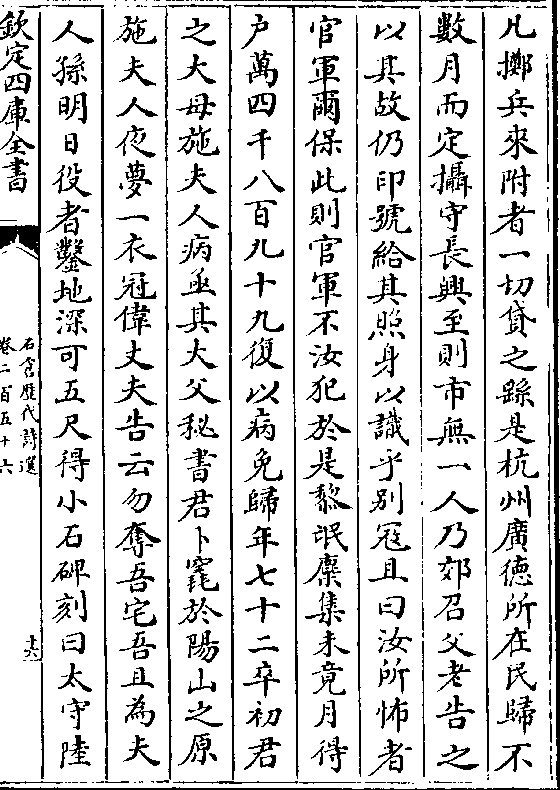 凡擲兵來附者一切貸之繇是杭州廣德所在民歸不
數月而定攝守長興至則市無一人乃郊召父老告之
以其故仍印號給其照身以識乎别冦且曰汝所怖者
官軍爾保此則官軍不汝犯於是黎氓麇集未竟月得
户萬四千八百九十九復以病免歸年七十二卒初君
之大母施夫人病亟其大父秘書君卜窀於陽山之原
施夫人夜夢一衣冠偉丈夫告云勿奪吾宅吾且為夫
人孫明日役者鑿地深可五尺得小石碑刻曰太守陸
欽定四庫全書
石倉歷代詩選
卷二百五十六